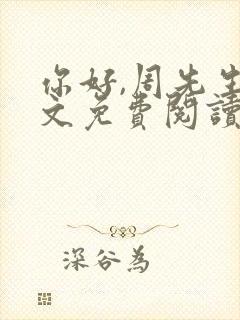 你好,周先生
文免費閱讀
深谷為